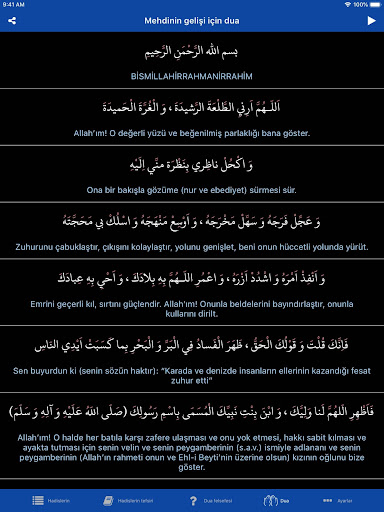 9:41 AM
Mehdinin gelişi için dua
بِسمِ اللهِ الرَّحْمَنِ الرَّحِيمِ
BİSMİLLAHİRRAHMANİRRAHİM
اَللّـهُمَّ اَرِنيِ الطَّلْعَةَ الرَّشيدَةَ ، وَ الْغُرَّةَ الْحَميدَةَ
Allah'ım! O değerli yüzü ve beğenilmiş parlaklığı bana göster.
وَ اكْحُلْ ناظِري بِنَظْرَة منِّي اِلَيْهِ
Ona bir bakışla gözüme (nur ve ebediyet) sürmesi sür.
وَ عَجِّلْ فَرَجَهُ وَ سَهِّلْ مَخْرَجَهُ ، وَ اَوْسِعْ مَنْهَجَهُ وَ اسْلُكْ بي مَحَجَّتَهُ
Zuhurunu çabuklaştır, çıkışını kolaylaştır, yolunu genişlet, beni onun hüccetli yolunda yürüt.
وَ اَنْفِذْ اَمْرَهُ وَ اشْدُدْ اَزْرَهُ ، وَ اعْمُرِ اللّـهُمَّ بِهِ بِلادَكَ ، وَ اَحْيِ بِهِ عِبادَكَ
Emrini geçerli kıl, sırtını güçlendir. Allah'ım! Onunla beldelerini bayındırlaştır, onunla
kullarını dirilt.
فَاِنَّكَ قُلْتَ وَ قَوْلُكَ الْحَقُّ ، ظَهَرَ الْفَسادُ فِي الْبَرِّ وَ الْبَحْرِ بِما كَسَبَتْ اَيْدِي النّاسِ
Sen buyurdun ki (senin sözün haktır): “Karada ve denizde insanların ellerinin kazandığı fesat
zuhur etti”
فَاَظْهِرِ اللّهُمَّ لَنا وَلِيَّكَ ، وَ ابْنَ بِنْتِ نَبِيِّكَ الْمُسَمّى بِاسْمِ رَسُولِكَ (صَلَّى اللهُ عَلَيْهِ وَ آلِهِ وَ سَلَّمَ)
Allah'ım! O halde her batıla karşı zafere ulaşması ve onu yok etmesi, hakkı sabit kılması ve
ayakta tutması için senin velin ve senin peygamberinin (s.a.v.) ismiyle adlananı ve senin
peygamberinin (Allah'ın rahmeti onun ve Ehl-i Beyti'nin üzerine olsun) kızının oğlunu bize
göster.
Hadislerin
Hadislerin tefsiri
Dua felsefesi
Dua
Ayarlar